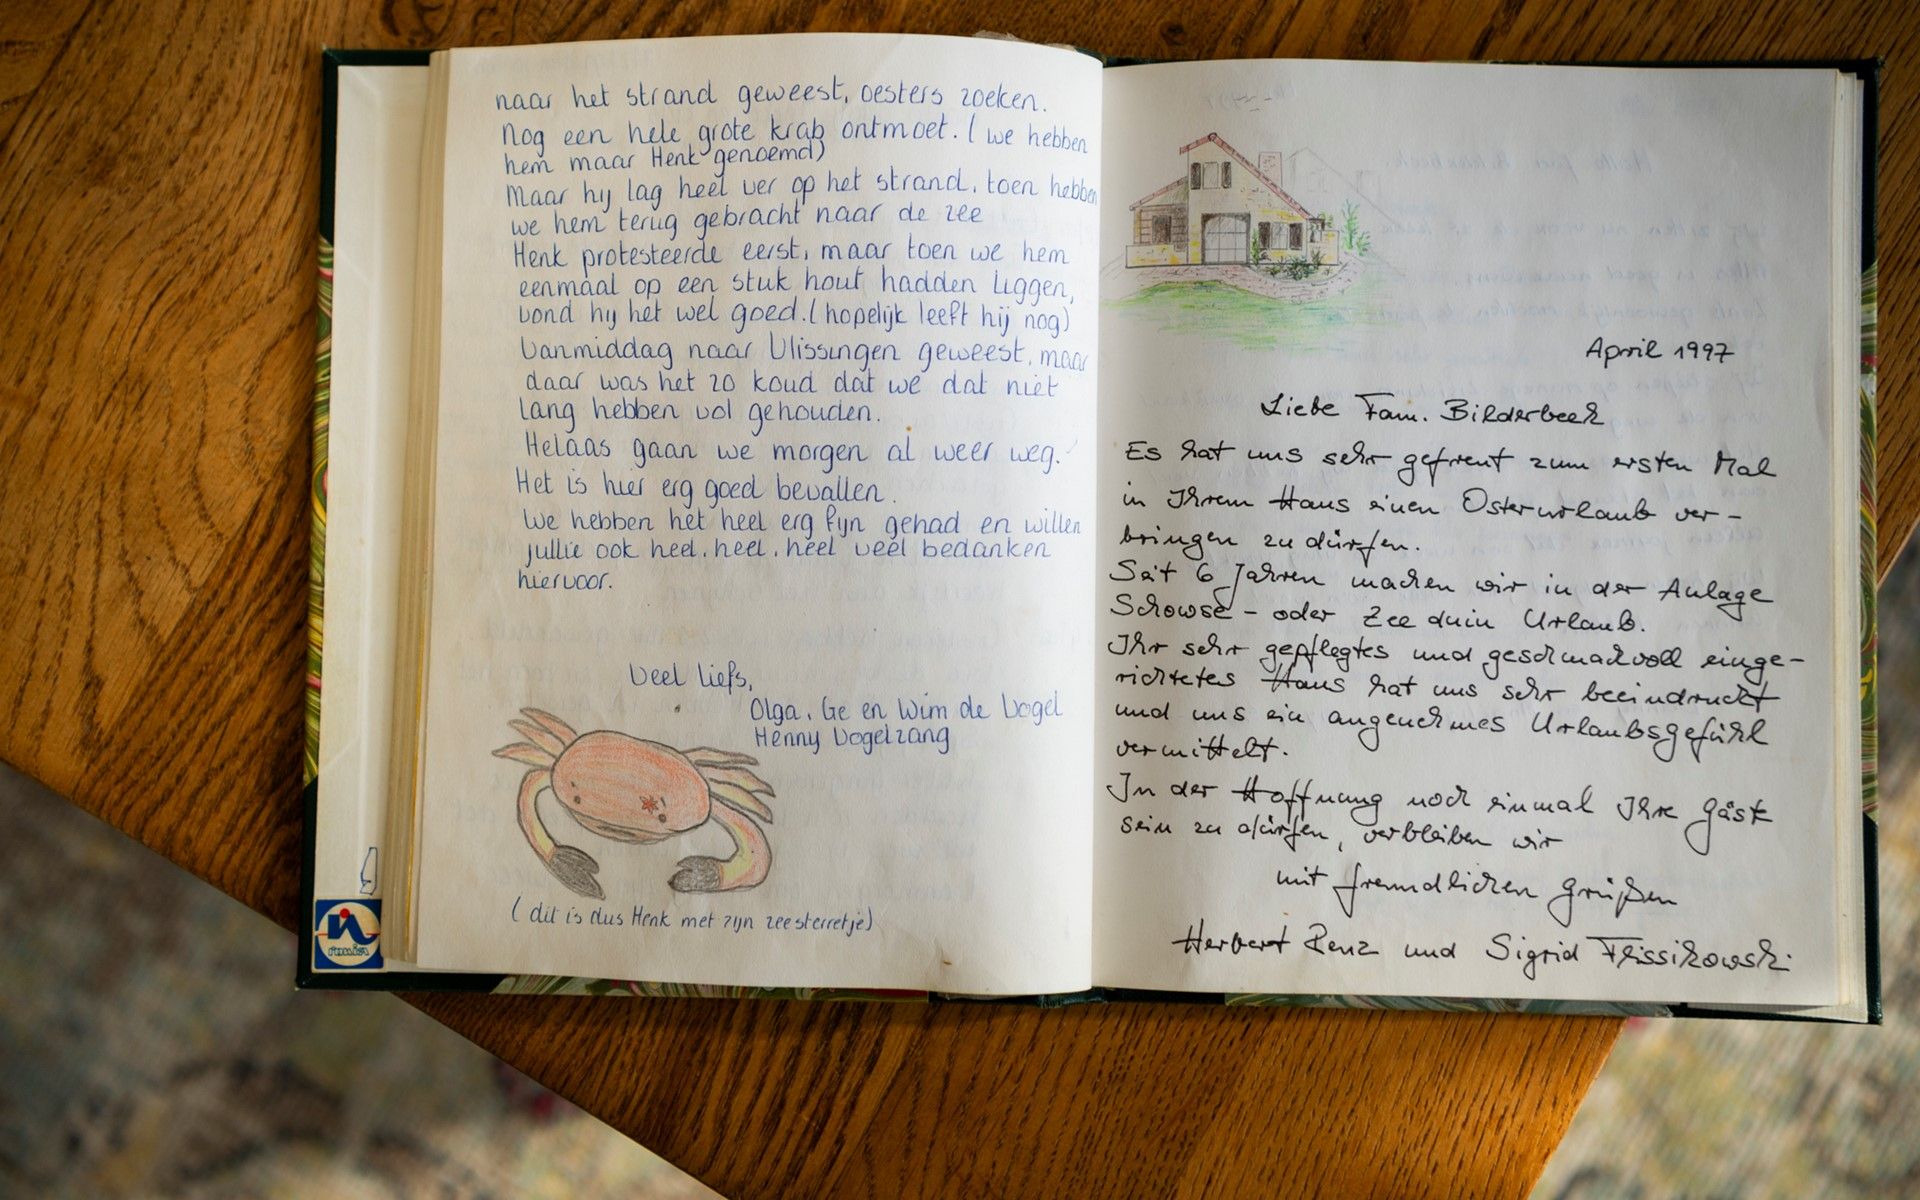 naar het strand geweest, oesters zoeken.
Nog een hele grote krab ontmoet. (we hebben
hem maar Henk genoemd)
Maar hij lag heel ver op het strand, toen hebben
we hem terug gebracht naar de zee
Henk protesteerde eerst, maar toen we hem
eenmaal op een stuk hout hadden liggen,
vond hij het wel goed. (hopelijk leeft hij nog)
Vanmiddag naar Vlissingen geweest, maar
daar was het zo koud dat we dat niet
lang hebben vol gehouden.
Helaas gaan we morgen al weer weg.
Het is hier erg goed bevallen.
We hebben het heel erg fijn gehad en willen
jullie ook heel, heel, heel veel bedanken
hiervoor.
Veel liefs,
Olga, Ge en Wim de Vogel
Henny Vogelzang
(dit is dus Henk met zijn zeesterretje)
April 1997
Liebe Fam. Bilderbeek
Es hat uns sehr gefreut zum ersten Mal
in Ihrem Haus einen Osterurlaub ver-
bringen zu dürfen.
Seit 6 Jahren machen wir in der Anlage
Schowse- oder Zee duin Urlaub.
Ihr sehr gepflegtes und geschmackvoll einge-
richtetes Haus hat uns sehr beeindruckt
und uns ein angenehmes Urlaubsgefühl
vermittelt.
In der Hoffnung noch einmal Ihre Gäste
sein zu dürfen, verbleiben wir
mit freundlichen Grüßen
Herbert Renz und Sigrid Flissikowski